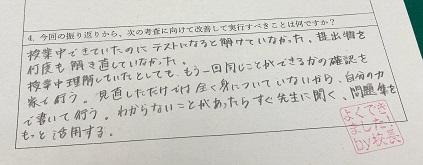 4. 今回の振り返りから、次の考査に向けて改善して実行すべきことは何ですか？
授業中できていたのにテストになると解けていなかった。提出物を
何度も解き直していなかった。
授業中理解していたとしても、もう一回同じことができるかの確認を
家で行う。見直しただけでは全く身についていないから、自分の力
で書いて行う。わからないことがあったらすぐ先生に聞く、問題集を
もっと活用する。
よくでき
ました
by校長